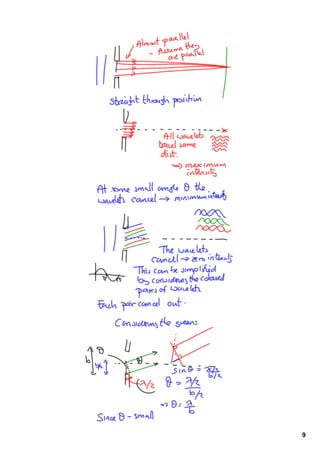 Almost parallel
- Assume they
are parallel
Straight through position
All wavelets
travel same
dist.
=> maximum
intensity
At some small angle θ the
wavelets cancel → minimum intensity
The wavelets
cancel → zero intensity
This can be simplified
by considering the coloured
pairs of wavelets
Each pair cancel out.
Considering the green:
θ
b
b/2
θ
λ/2
Sin θ = λ/2
b/2
θ = λ/2
b/2
=> θ = λ
b
Since θ - small
9